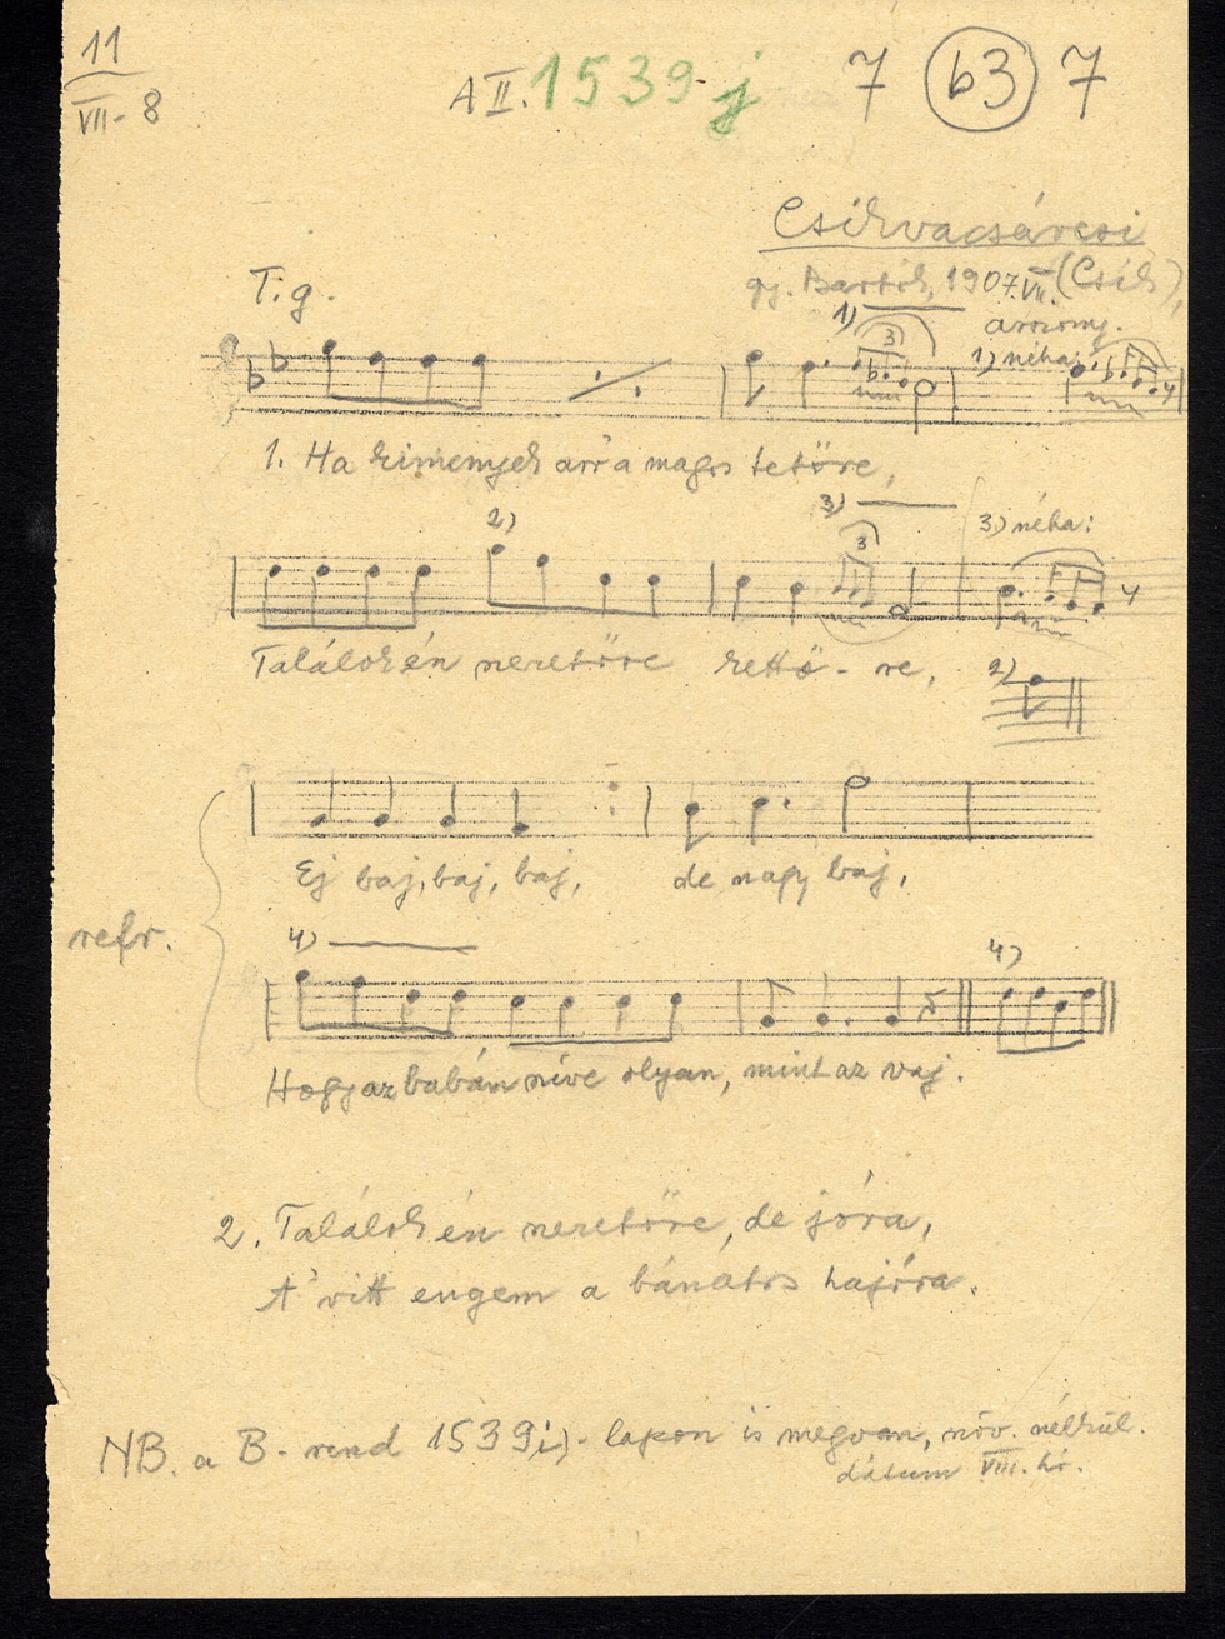 11
VII-8
A II. 1539 j 7 b3 7
Csíkvacsárcsi
gy. Bartók, 1907.VII. (Csík),
asszony.
T. g.
1) 3 1) néha:
1. Ha kimenyek arr'a magos tetőre,
2) 3) 3 3) néha:
Találok én szeretőre kettő - re,
2)
Ej baj, baj, baj, de nagy baj,
refr.
4) 4)
Hogy az babán szíve olyan, mint az vaj.
2. Találok én szeretőre, de jóra,
A' vitt engem a bánatos hajóra.
NB. a B-rend 1539i)-lapon is megvan, szöv. nélkül.
dátum VIII. hó.